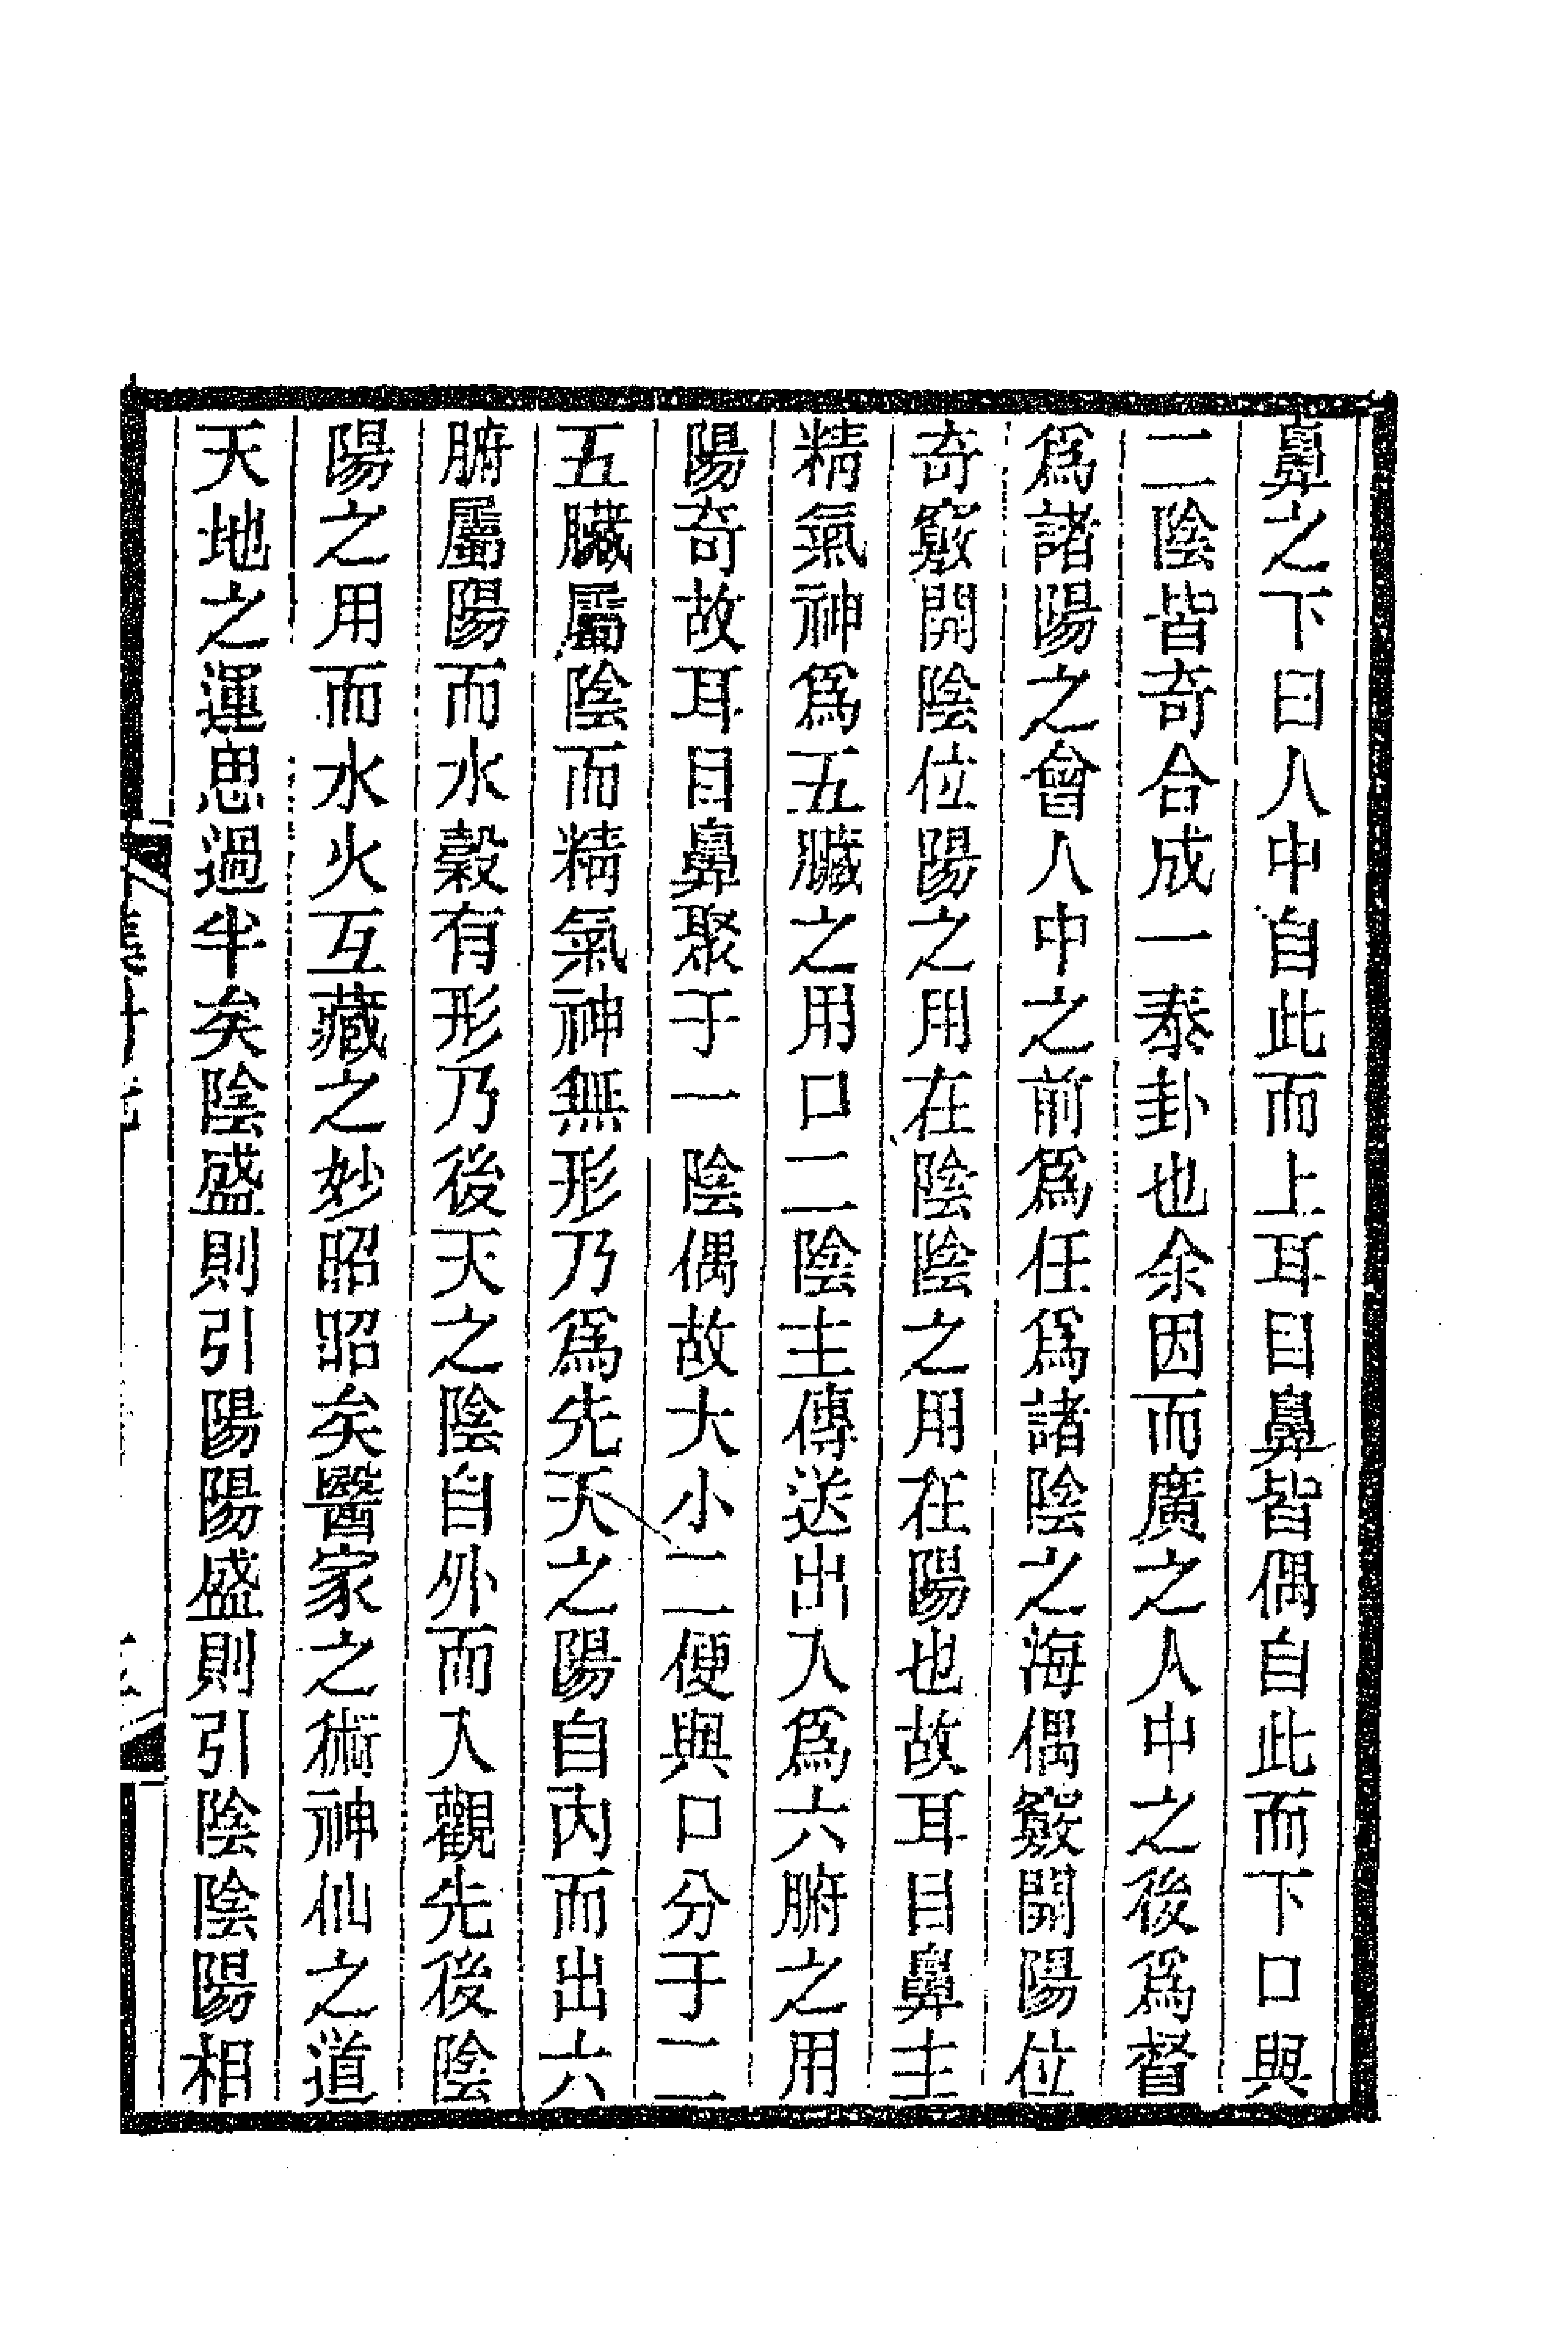 鼻之下曰人中自此而上耳目鼻皆偶自此而下口與
二陰皆奇合成一泰卦也余因而廣之人中之後爲督
爲諸陽之會人中之前爲任爲諸陰之海偶竅開陽位
奇竅開陰位陽之用在陰陰之用在陽也故耳目鼻主
精氣神爲五臟之用口二陰主傳送出入爲六腑之用
陽奇故耳目鼻聚于一陰偶故大小二便與口分于二
五臟屬陰而精氣神無形乃爲先天之陽自內而出六
腑屬陽而水穀有形乃後天之陰自外而入觀先後陰
陽之用而水火互藏之妙昭昭矣醫家之術神仙之道
天地之運思過半矣陰盛則引陽陽盛則引陰陰陽相